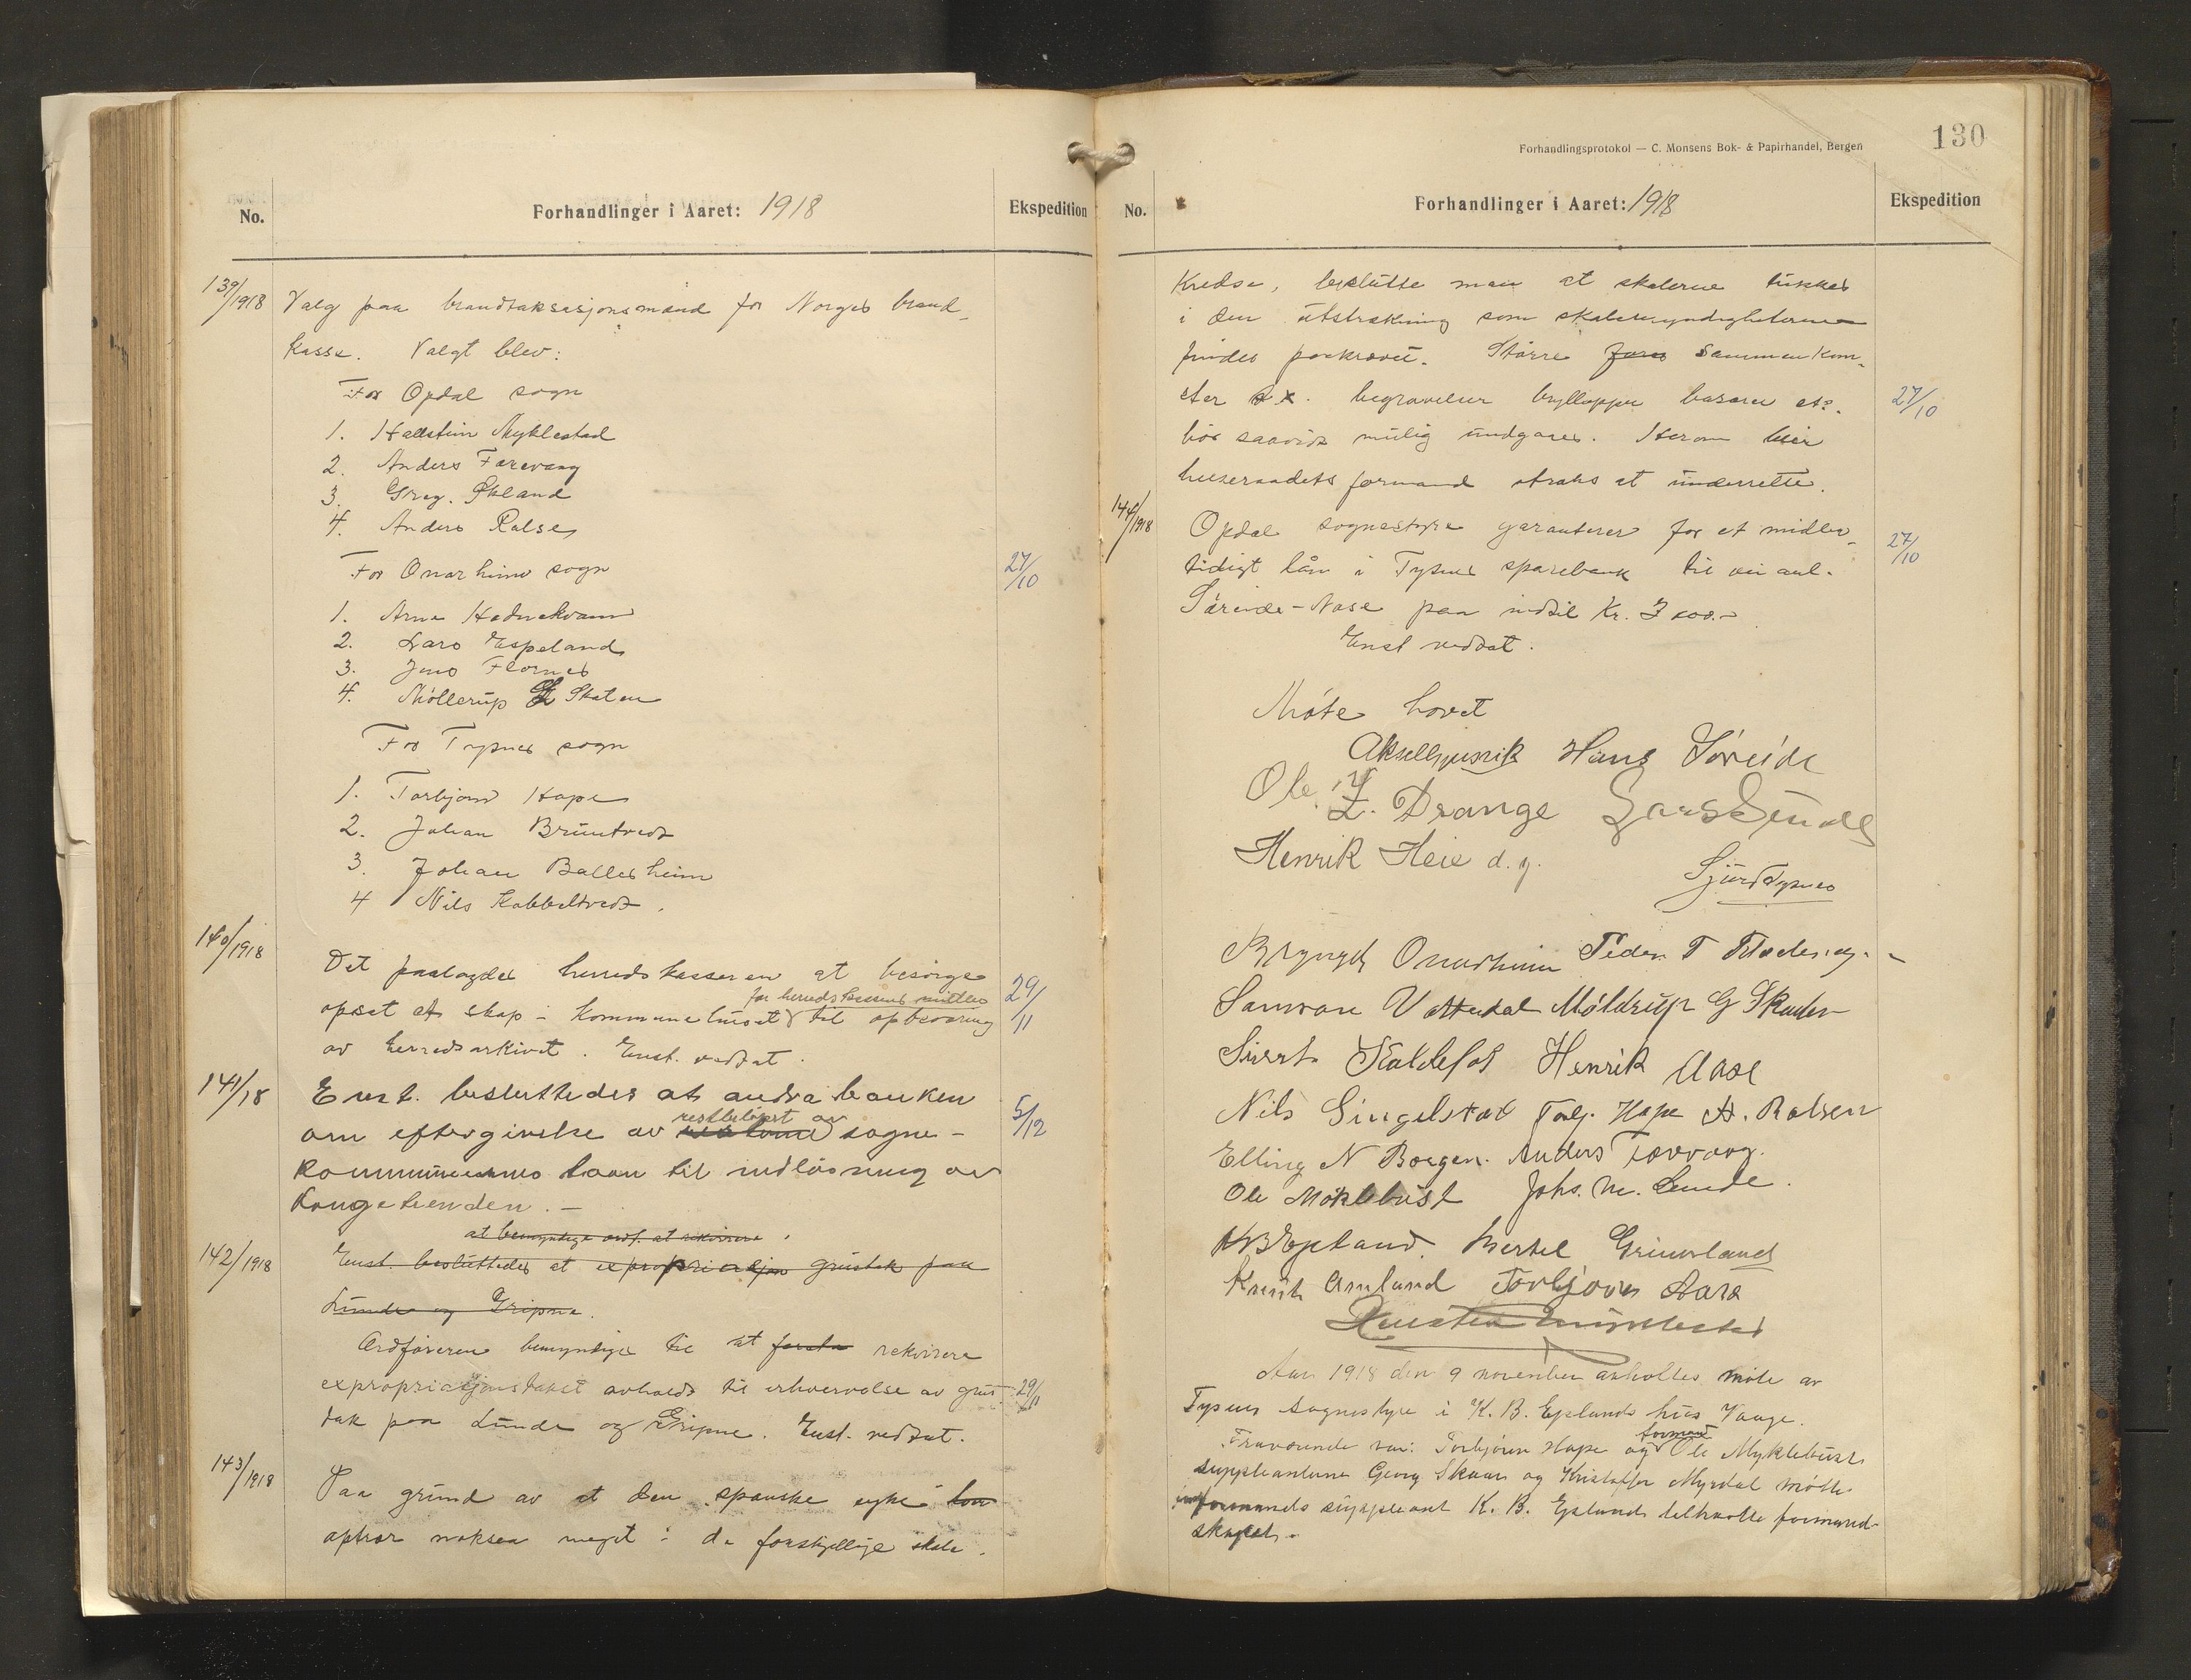 No.
Forhandlinger i Aaret: 1918
Ekspedition
139/1918 Valg paa brandtaksasjonsmænd for Norges brand-
kasse. Valgt blev:
For Opdal sogn
1. Hallstein Myklestad
2. Anders Færevaag
3. Greg. Økland
4. Anders Ralsen
For Onarheim sogn
27/10
1. Arne Hadnekvam
2. Lars Espeland
3. Jens Flornes
4. Møllerup G Skaten
For Tysnes sogn
1. Torbjørn Hope
2. Johan Bruntvedt
3. Johan Ballesheim
4 Nils Kobbeltvedt.
140/1918
Det paalægdes herredskasseren at besørge
for herredskassens midler
opsat et skap i kommunehuset til opbevaring
29/11
av herredsarkivet. Enst. vedtat.
141/18 Enst. besluttedes at andra banken
restbeløpet av
om eftergivelse av sogne-
5/12
kommunernes laan til indløsning av
Kongetienden. –
at bemyndige ordf. at rekvirere
142/1918 Enst. besluttedes at expropriasjon grustak paa
Lunde og Gripne.
Ordføreren bemyndiges til at rekvirere
expropriasjonstakst avholdt til erhvervelse av grus-
29/11
tak paa Lunde og Gripne. Enst. vedtat.
143/1918
Paa grund av at den "spanske syke"
optrær noksaa meget i de forskjellige skole-
Forhandlingsprotokol — C. Monsens Bok- & Papirhandel, Bergen
130
No.
Forhandlinger i Aaret: 1918
Ekspedition
Kredse, beslutte man at skolerne lukkes
i den utstrækning som skolemyndigheterne
findes paakrævet. Større sammenkom-
ster begravelser brylluper basarer etc.
27/10
bør saavidt mulig undgaaes. Herom blir
helseraadets formand straks at underrette.
144/1918
Opdal sognestyre garanterer for et midler-
27/10
tidigt lån i Tysnes sparebank til vei anl.
Søreide-Nase paa indtil Kr. 3000.-
Enst vedtat.
Møte hævet
Aksel Gjusvik Hans Søreide
Ole. Z. Drange Lars Lunde
Henrik Heie d. y.
Sjurd Tysnes
Brynjulf Onarheim Peder T
Samson Vattedal Møldrup G Skaten
Sivert Kaldefos Henrik Aase
Nils Singelstad Torbj. Hope A. Ralsen
Elling N Borgen. Anders Færevaag.
Ole Møklebust Johs. M. Lunde.
K B Epland. Mertel Grimsland
Knut Amland Torbjørn Aara
Hallstein Myklestad
Aar 1918 den 9 november avholtes møte av
Tysnes Sognestyre i K. B. Eplands hus Vaage.
formand
Fraværende var: Torbjørn Hope og Ole Myklebust
suppleantene Georg Skaar og Kristoffer Myrdal møtte
formands suppleant K. B. Epland tiltraatte formand-
skapet.